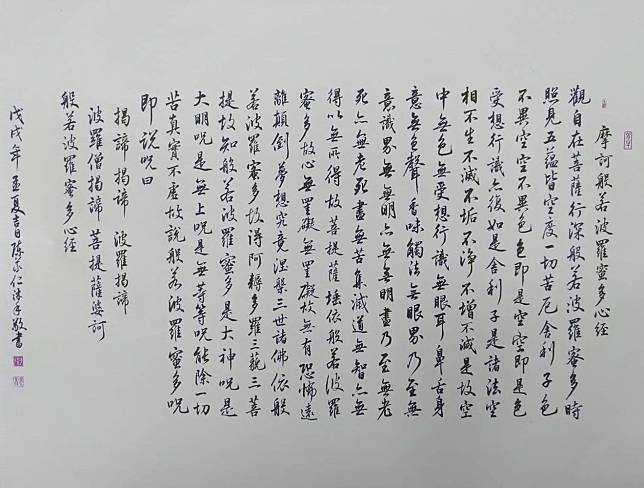 摩訶般若波羅蜜多心經
觀自在菩薩行深般若波羅蜜多時
照見五蘊皆空度一切苦厄舍利子色
不異空空不異色色即是空空即是色
受想行識亦復如是舍利子是諸法空
相不生不滅不垢不淨不增不減是故空
中無色無受想行識無眼耳鼻舌身
意無色聲香味觸法無眼界乃至無
意識界無無明亦無無明盡乃至無老
死亦無老死盡無苦集滅道無智亦無
得以無所得故菩提薩埵依般若波羅
蜜多故心無罣礙無罣礙故無有恐怖遠
離顛倒夢想究竟涅槃三世諸佛依般
若波羅蜜多故得阿耨多羅三藐三菩
提故知般若波羅蜜多是大神咒是
大明咒是無上咒是無等等咒能除一切
苦真實不虛故說般若波羅蜜多咒
即說咒曰
揭諦揭諦 波羅揭諦
波羅僧揭諦 菩提薩婆訶
般若波羅蜜多心經
戊戌年孟夏吉日陳永仁沐手敬書